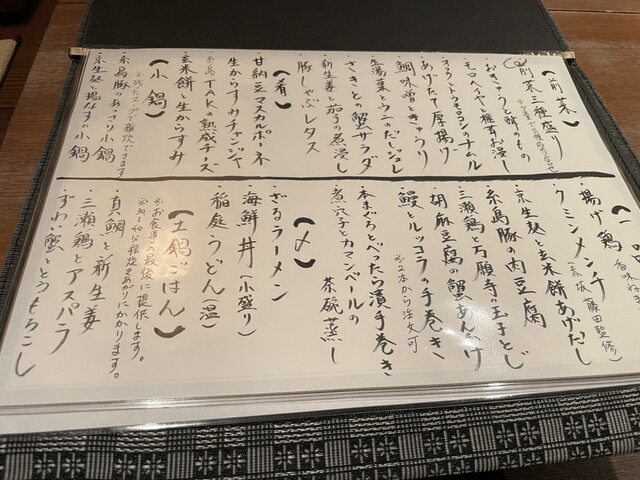 【前菜】
前菜三種盛り
モロヘイヤと椎茸お浸し
オクラトウモロコシのナムル
あげたて厚揚げ
鯛味噌ときゅうり
生湯葉とウニのだしジュレ
ささきとの蟹サラダ
新生姜と茄子の煮浸し
豚しゃぶレタス
【肴】
甘納豆マスカルポーネ
生からすみチャンジャ
糸島TAKの熟成チーズ
玄米餅と生からすみ
【小鍋】
※残たスープで雑炊できます
糸島豚のあっさり小鍋
京生麩と揚なすの小鍋
揚げ鶏
クミンメンチ(赤坂 藤田監修)
京生麩と玄米餅あげだし
糸島豚の肉豆腐
三瀬鶏と万願寺の玉子とじ
胡麻豆腐の蟹あんかけ
鰻とルッコラの手巻き
※2本から注文可
本まぐろとべったら漬手巻き
煮穴子とカマンベールの
茶碗蒸し
【〆】
ざるラーメン
海鮮丼(小盛り)
稲庭うどん(温)
【土鍋ごはん】
※お食事の最後に提供します。
※炊き上がりにかかります。
真鯛と新生姜
三瀬鶏とアスパラ
ずわい蟹ととうもろこし